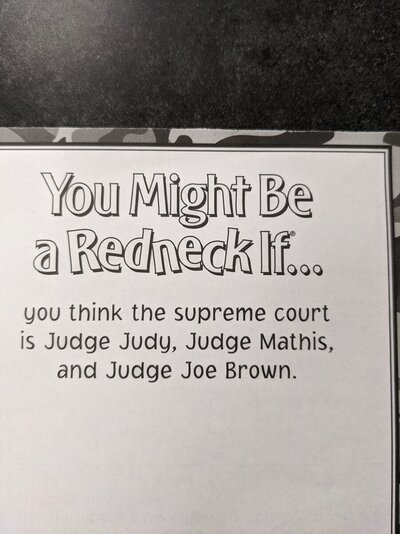 You Might Be
a Redneck If®...
you think the supreme court
is Judge Judy, Judge Mathis,
and Judge Joe Brown.